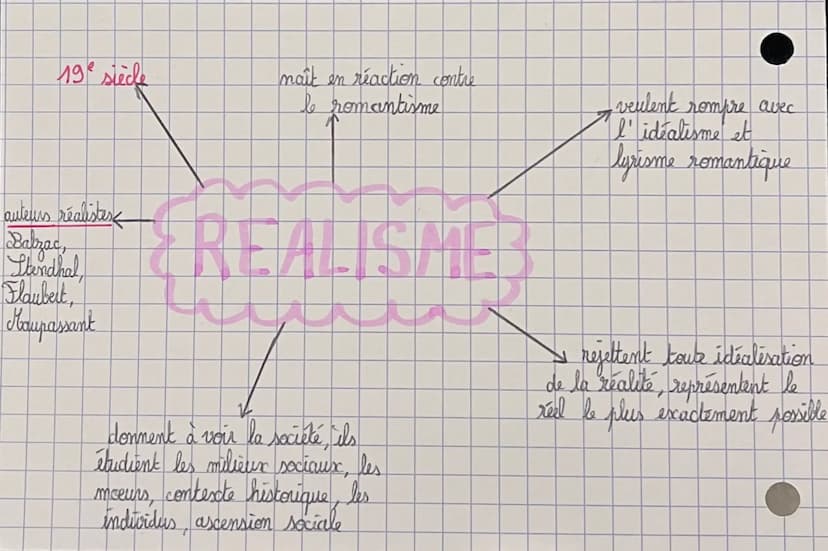 19e siècle
naît en réaction contre
le romantisme
veulent rompre avec
l'idéalisme et
lyrisme romantique
auteurs réalistes
Balzac,
Stendhal,
Flaubert,
Maupassant
REALISME
rejettent toute idéalisation
de la réalité, représentent le
réel le plus exactement possible
donnent à voir la société, ils
étudient les milieux sociaux, les
mœurs, contexte historique, les
individus, ascension sociale